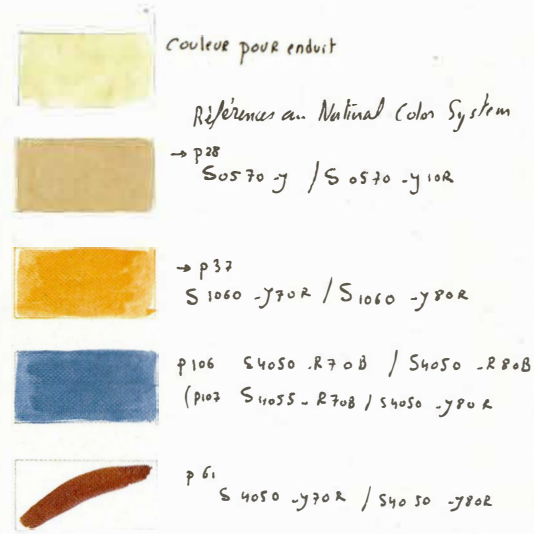 Couleur pour enduit
Références au Natural Color System
→ p28
S0570-y / S 0570-y10R
→ p37
S 1060-y70R / S1060-y80R
p106 S4050-R70B / S4050-R80B
(p107 S4055-R70B / S4050-y80R
p61
S 4050-y70R / S4050-y80R